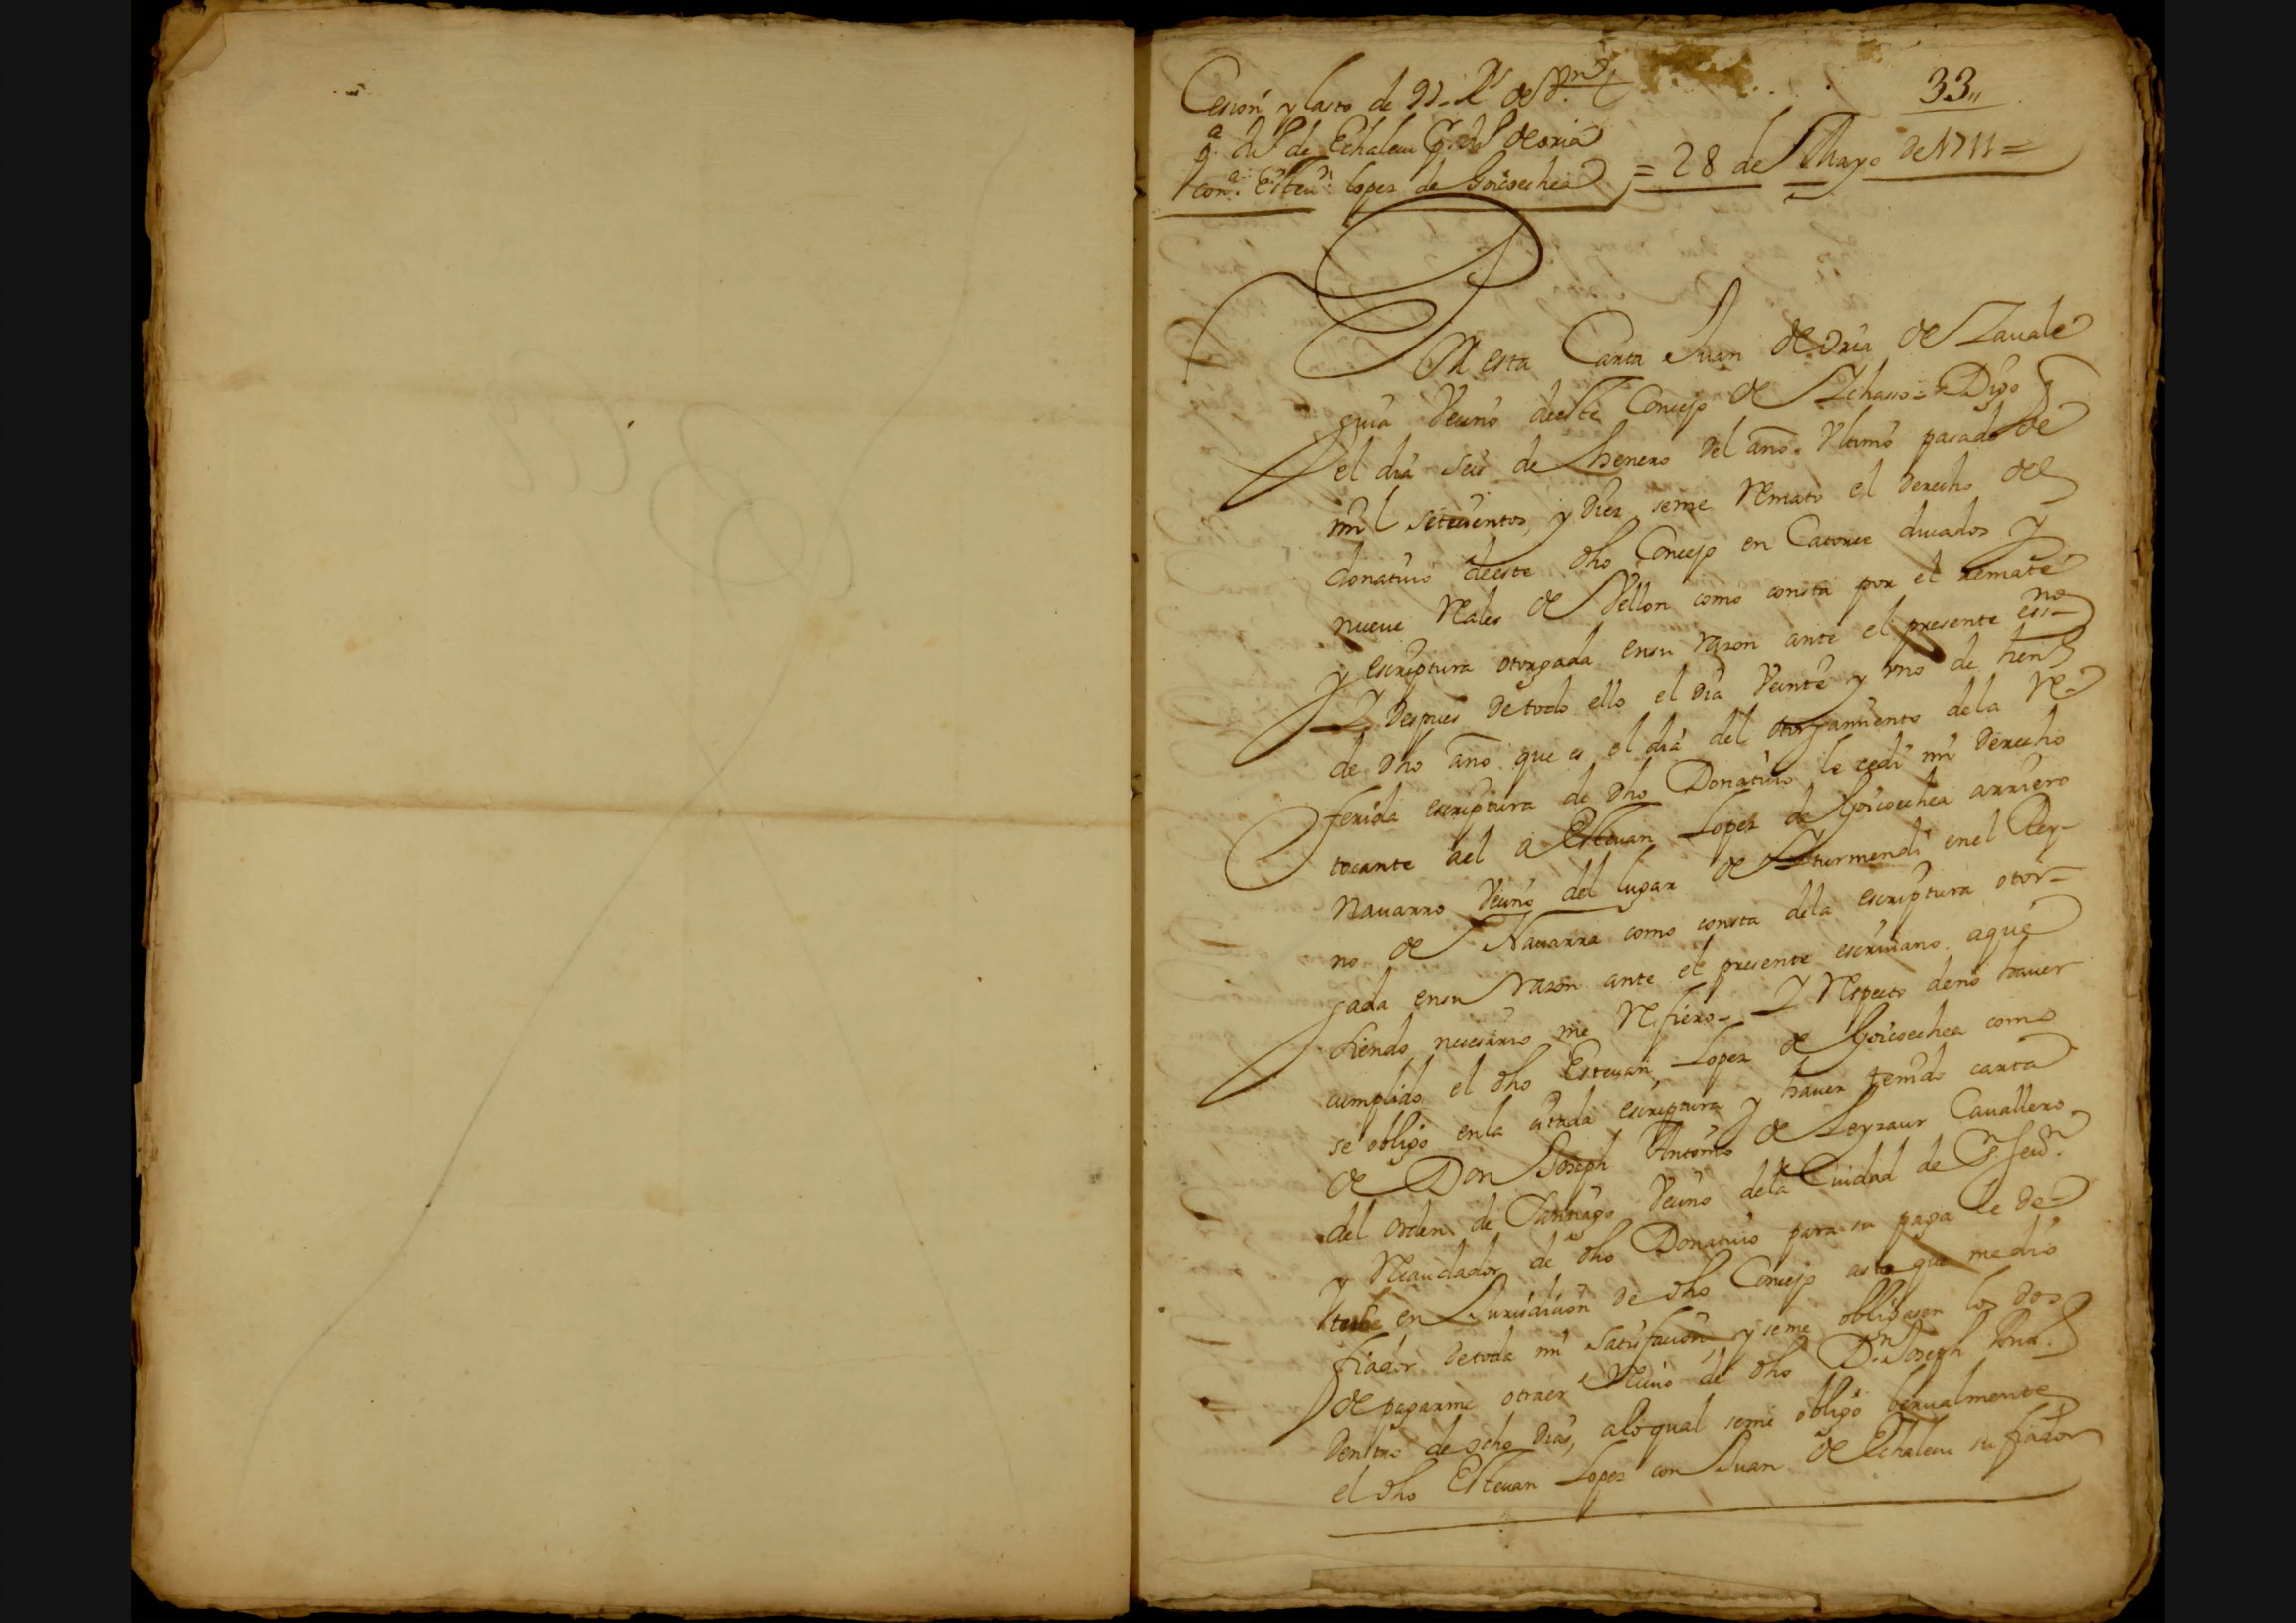 33
Cesion y lasto de 91 Rs de Vn
a Ju de Echalecu pr Ju de oria
con.a Esteu.n lopez de Goicoechea = 28 de Mayo de 1711 =
En esta Carta Juan de Oria de Lauale
guia Vecino deeste Concejo de Ichasso = Digo q
el dia seis de henero del año Vltimo pasado de
mil setecientos, y diez seme Remato el derecho del
donatiuo deeste dho Concejo en Catorce ducados y
nueue Reales de Vellon como consta por el remate
y escriptura otorgada ensu razon ante el presente essno
Y despues detodo ello el dia Veinte y vno de hen
de dho año que es el dia del otorgamiento dela Re
ferida escriptura de dho Donatiuo le cedi mi derecho
tocante ael a Esteuan Lopez de Goicoechea arriero
nauarro Vecino del lugar de Yturmendi enel Rey-
no de Nauarra como consta dela escriptura otor-
gada ensu razon ante el presente escriuano aque
siendo necesario me Refiero = Y Respecto deno hauer
cumplido el dho Esteuan Lopez de Goicoechea como
se obligo enla citada escriptura y hauer tenido carta
de Don Joseph Antonio de Leyzaur Cauallero
del orden de Santiago Vecino dela Ciudad de Sn Seu.n
y Recaudador de dho Donatiuo para su paga le de
tube en Jurisdicion de dho Concejo asta que me dio
fiador detoda mi satisfacion, y seme obligasen los dos
de pagarme otraer Reciuo de dho Dn Joseph Ant.
dentro de ocho dias, aloqual seme obligo berualmente
el dho Esteuan Lopez con Juan de Echalecu su fiador